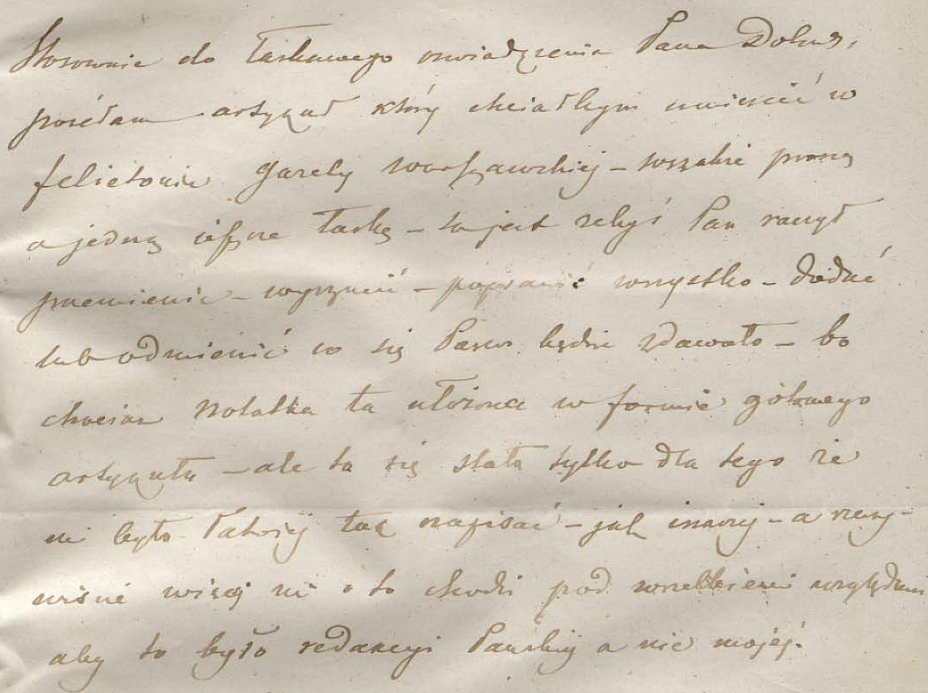 Stosownie do łaskawego oswiadczenia Pana Dobrodz,
posełam artykuł który chciałbym umieścić w
felietonie Gazety Warszawskiej – wszakże proszę
o jedną jeszcze łaskę – to jest żebyś Pan raczył
przemienić – wyrzucić – poprawić wszystko – dodać
lub odmienić co się Panu będzie zdawało – bo
chociaż notatka ta ułożona w formie gotowego
artykułu – ale to się stało tylko dla tego że
mi było łatwiej tak napisać – jak inaczej – a rzeczy-
wiście więcej mi o to chodzi pod wszelkiemi względami
aby to było redakcyi Pańskiej a nie mojej.